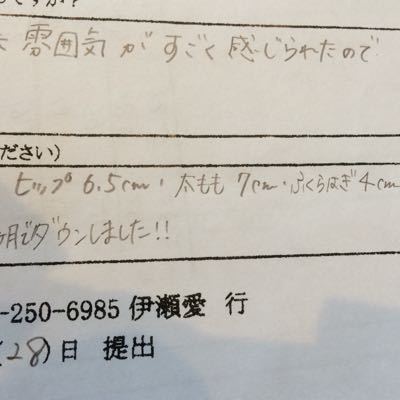 ですか?
雰囲気がすごく感じられたので
ださい)
ヒップ 6.5cm・太もも 7cm・ふくらはぎ 4cm
ヶ月でダウンしました!!
-250-6985 伊瀬愛 行
(28)日 提出